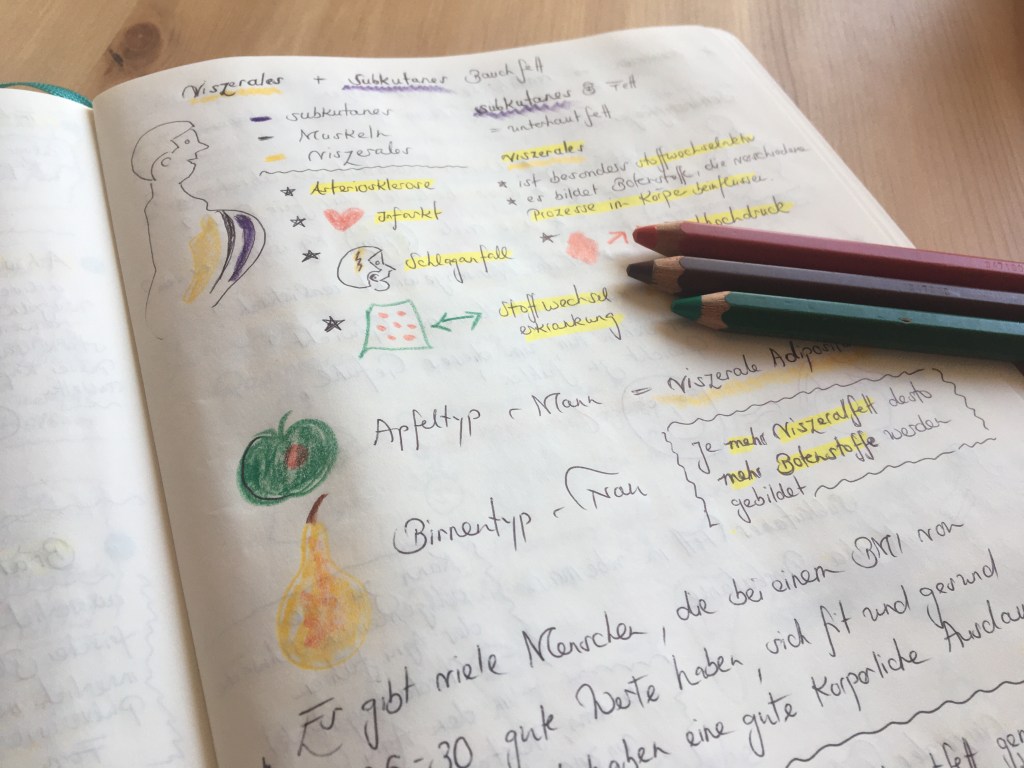 Viszerales + Subkutanes Bauchfett
subkutanes
Muskeln
Viszerales
subkutanes Fett
= unterhautfett
Viszerales
* ist besonders stoffwechselaktiv
* es bildet Botenstoffe, die verschiedene
Prozesse im Körper beeinflussen
* Arteriosklerose
* Infarkt
* Schlaganfall
* hochdruck
* Stoffwechsel
erkrankung
Apfeltyp - Mann = Viszerale
Birnentyp - Frau
Je mehr Viszeralfett desto
mehr Botenstoffe werden
gebildet
Es gibt viele Menschen, die bei einem BMI von
-30 gute Werte haben, sich fit und gesund
haben eine gute Körperliche